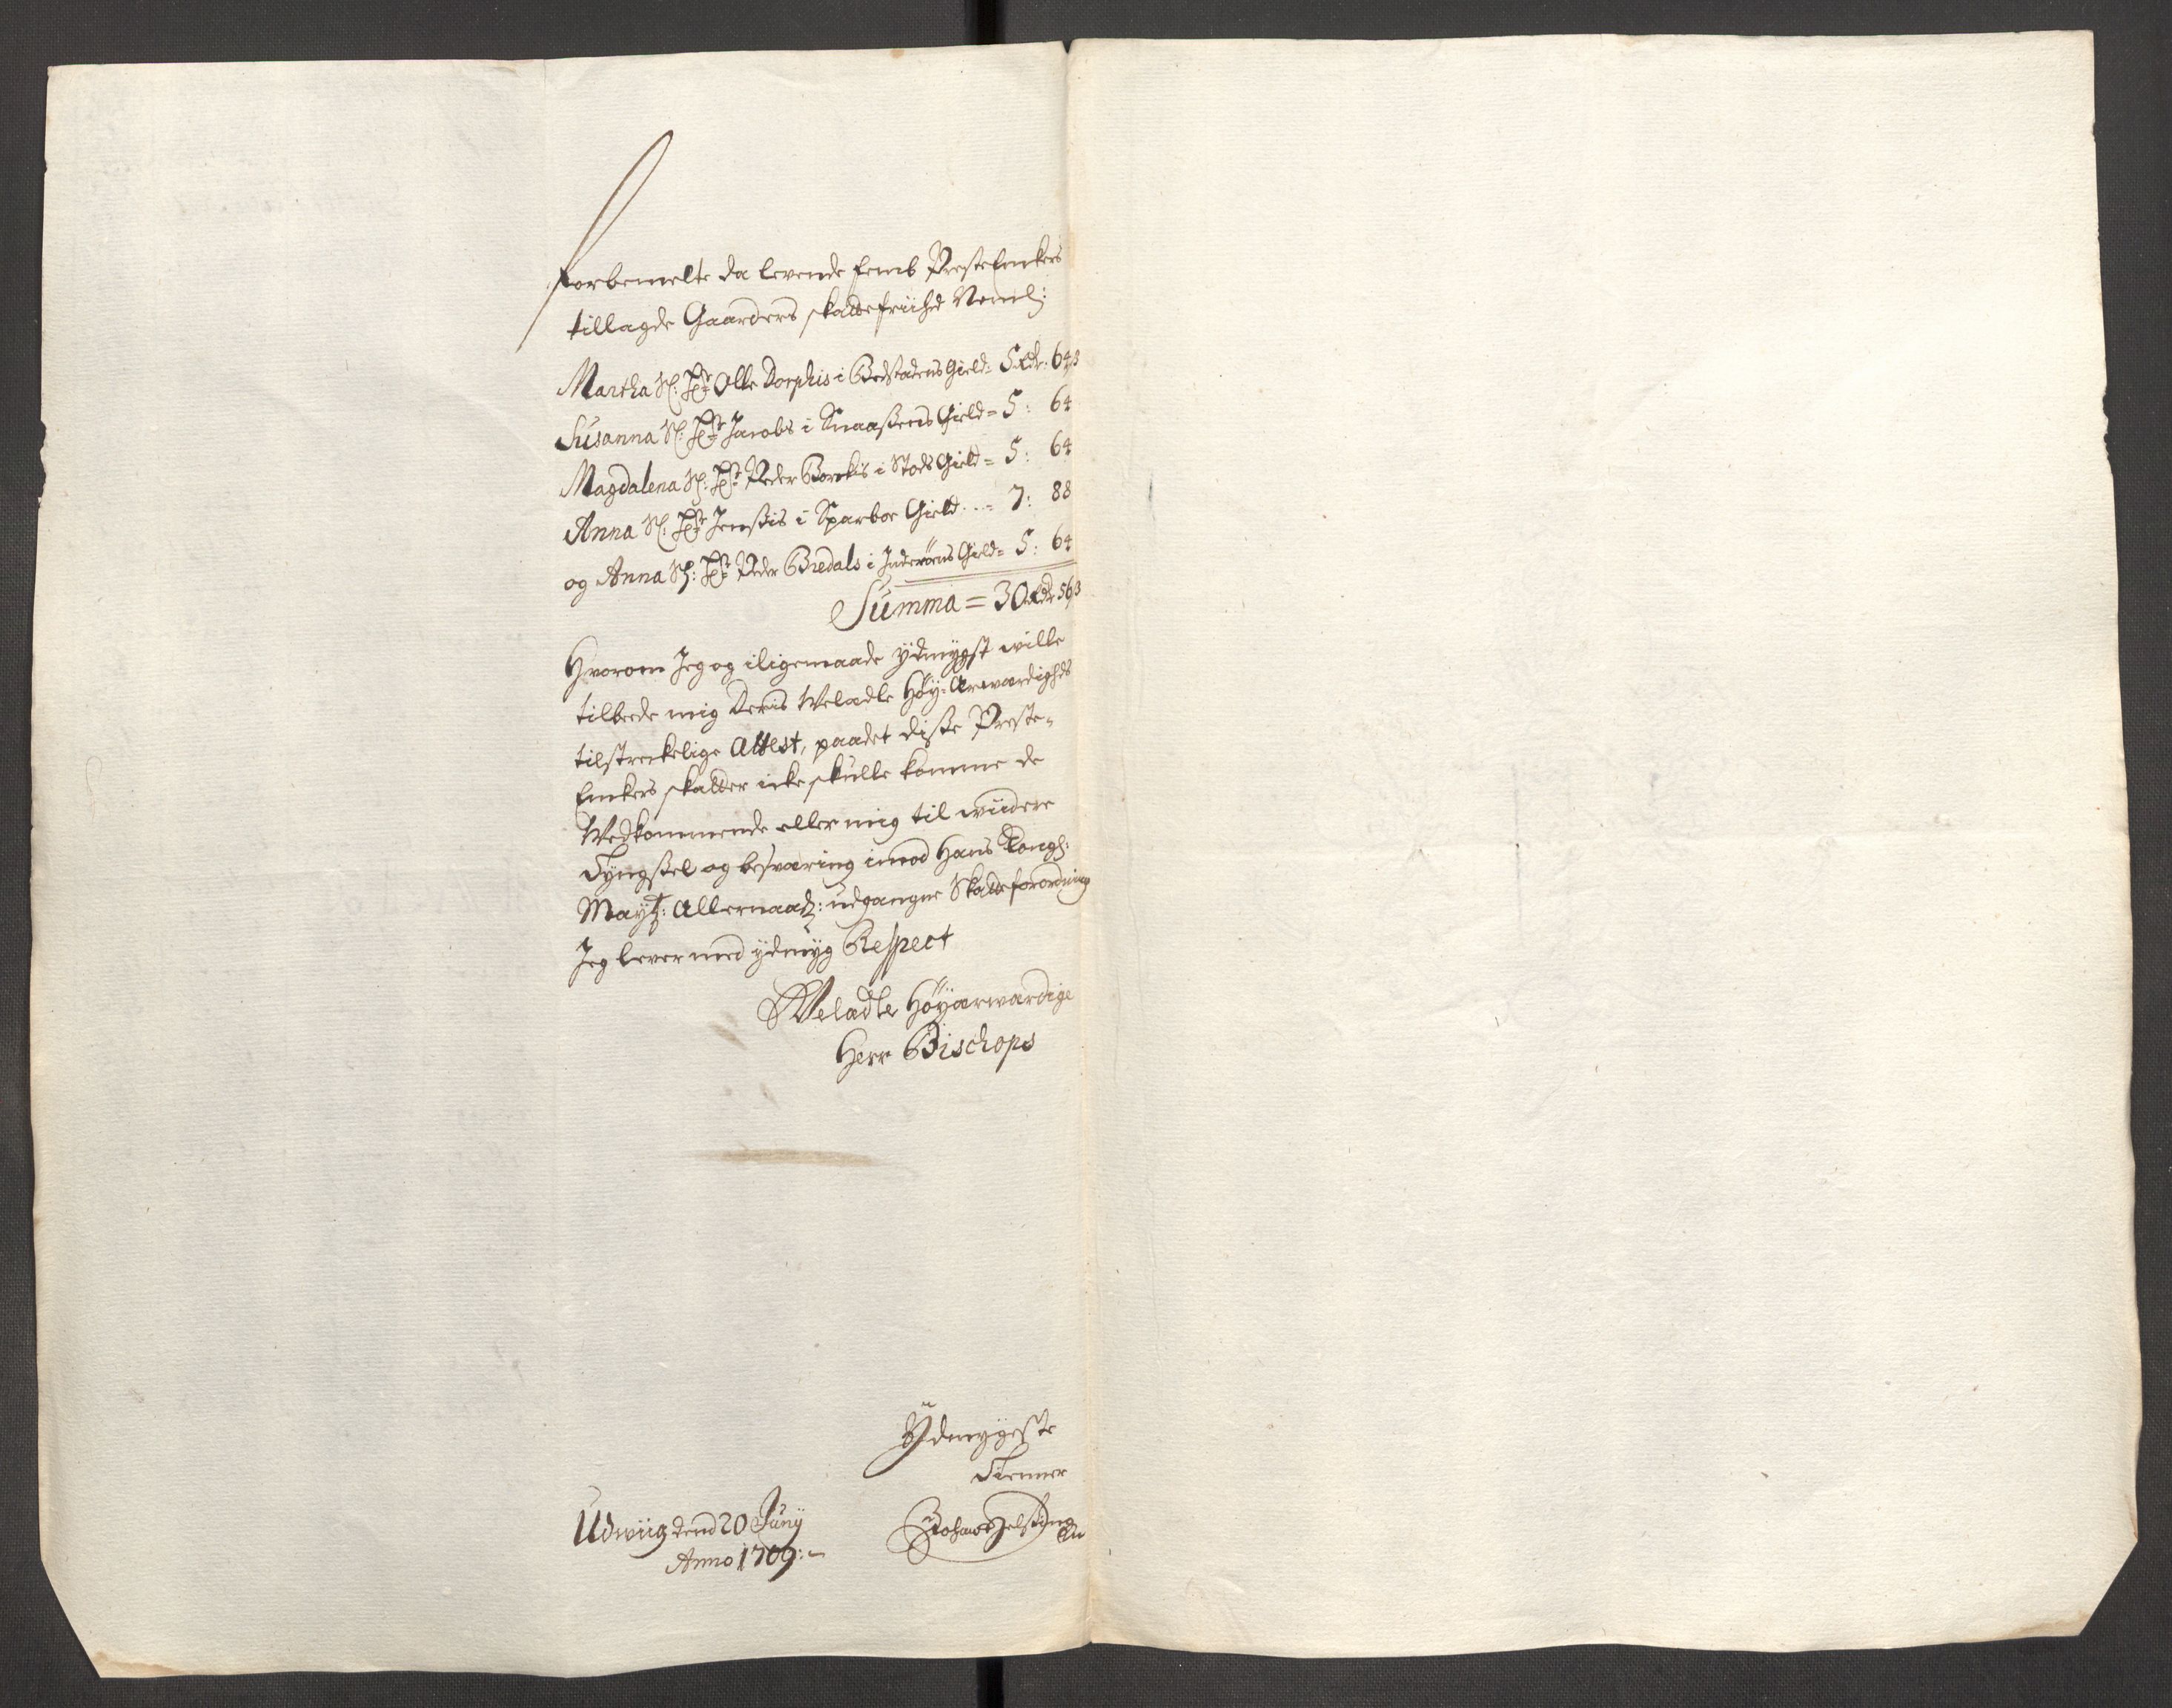 forbemelte da levende femb Præste Enkers
tillagde Gaarders skattefriihd Neml:
Martha Sl: Hr: Olle Dorphis i Bedstadens Gield= 5 Rdr: 64 β
Susanna Sl: Hr: Jacobs i Snaaßens Gield= 5: 64
Magdalena Sl: Hr: Peder Borchis i Stods Gield= 5: 64
Anna Sl: Hr: Jenßis i Sparboe Gield...= 7: 88
og Anna Sl: Hr: Peder Bredals i Inderøens Gield= 5: 64
Summa = 30 Rdr 56 β
Hvorom Jeg og iligemaade ydmygst wille
tilbede mig Deris Weladle Høy-Ærwærdigheds
tilstreckelige Attest, paadet disse Præste-
Enkers skatter icke skulle komme de
Wedkommende eller mig til wiidere
Tyngsel og beswæring imod Hans Kongl:
Maytz: Allernaads: udgangne Skatteforordning
Jeg lever med ydmyg Respect
Weladle Høyærwærdige
Herr Bischops
Ydmygeste
Tienner
Udwiig dend 20 Juny
Anno 1709:-